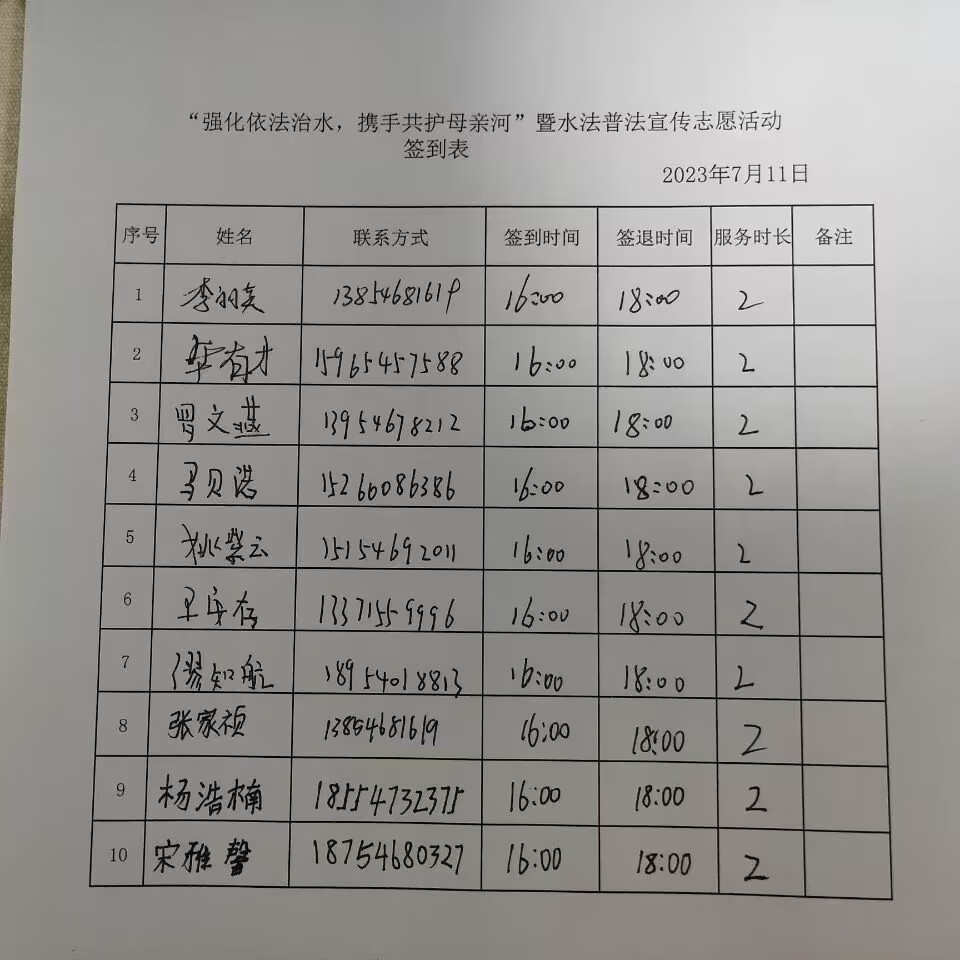 “强化依法治水，携手共护母亲河”暨水法普法宣传志愿活动
签到表
2023年7月11日
序号 姓名 联系方式 签到时间 签退时间 服务时长 备注
1 13854681619 16:00 18:00 2
2 华有才 15965457588 16:00 18:00 2
3 罗文燕 13954678212 16:00 18:00 2
4 马贝诺 15266086386 16:00 18:00 2
5 姚紫云 15154692011 16:00 18:00 2
6 13371559996 16:00 18:00 2
7 缪知航 18954018813 16:00 18:00 2
8 张家祯 13854681619 16:00 18:00 2
9 杨浩楠 18554732375 16:00 18:00 2
10 宋雅馨 18754680327 16:00 18:00 2